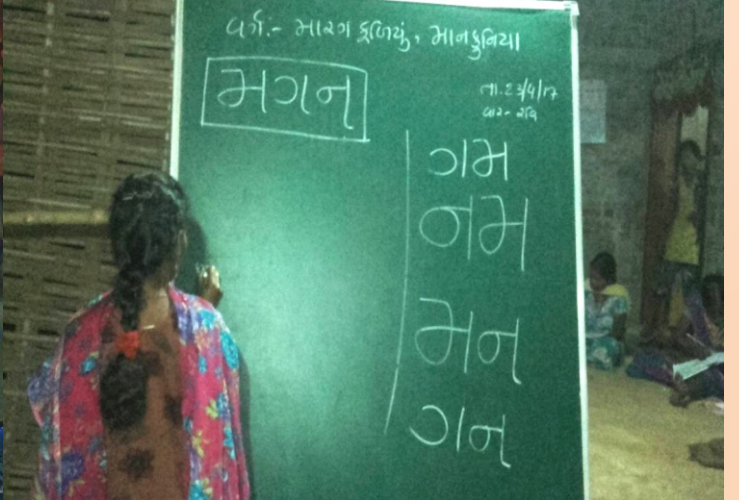 વર્ગ:- મારગ ફળિયું, માનકુનિયા
મગન
તા.૨૩/૫/૧૭
વાર- રવિ
ગમ
નમ
મન
ગન